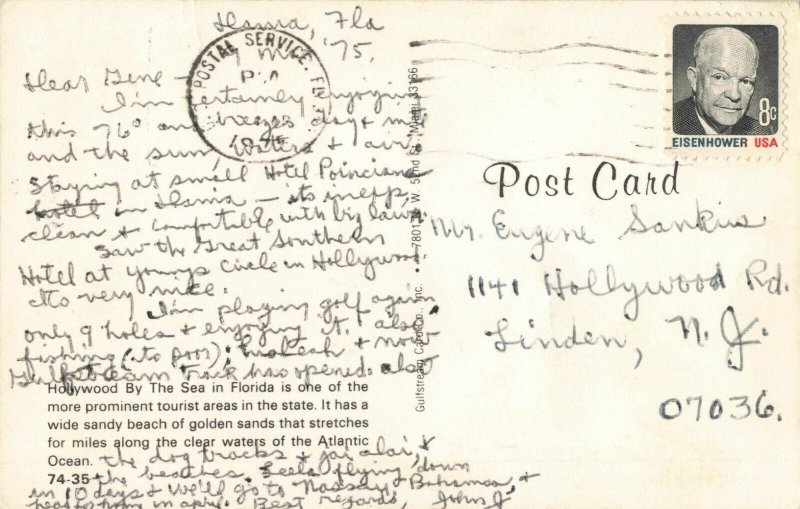 Dania, Fla
'75.
Dear Gene -
I'm certainly enjoying
this 76° and breezes day & nite
and the sun, waters & air.
Staying at small Hotel Poinciana
hotel in Dania - its inexp,
clean & comfortable with big lawn.
Saw the Great Southern
Hotel at Youngs Circle in Hollywood.
Its very nice.
I'm playing golf again
only 9 holes & enjoying it. also
fishing (its poor); Hialeah & now
Gulfstream Track has opened. also
the dog tracks & jai alai, &
the beaches. Leela flying down
in 10 days & we'll go to Nassau Bahamas, &
head for home in april. Best regards, John J
Hollywood By The Sea in Florida is one of the
more prominent tourist areas in the state. It has a
wide sandy beach of golden sands that stretches
for miles along the clear waters of the Atlantic
Ocean.
74-35
POSTAL SERVICE, FL
PM
1975
Gulfstream Card Co., Inc. • 7801 N.W. 52nd St. Miami 33166
8c
EISENHOWER USA
Post Card
Mr. Eugene Sankius
1141 Hollywood Rd.
Linden, N.J.
07036.